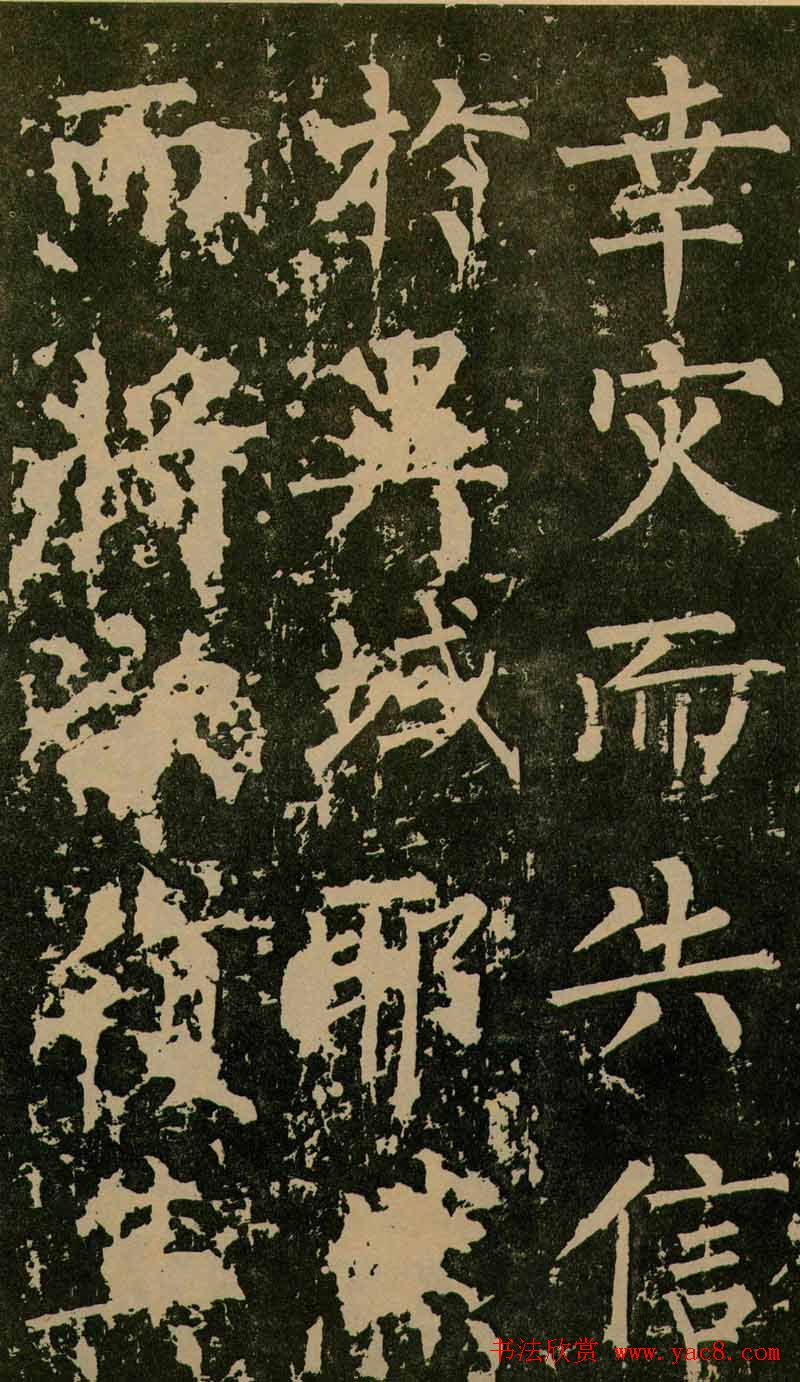 幸灾而失信
於異域耶
而將復
书法欣赏 www.yac8.com